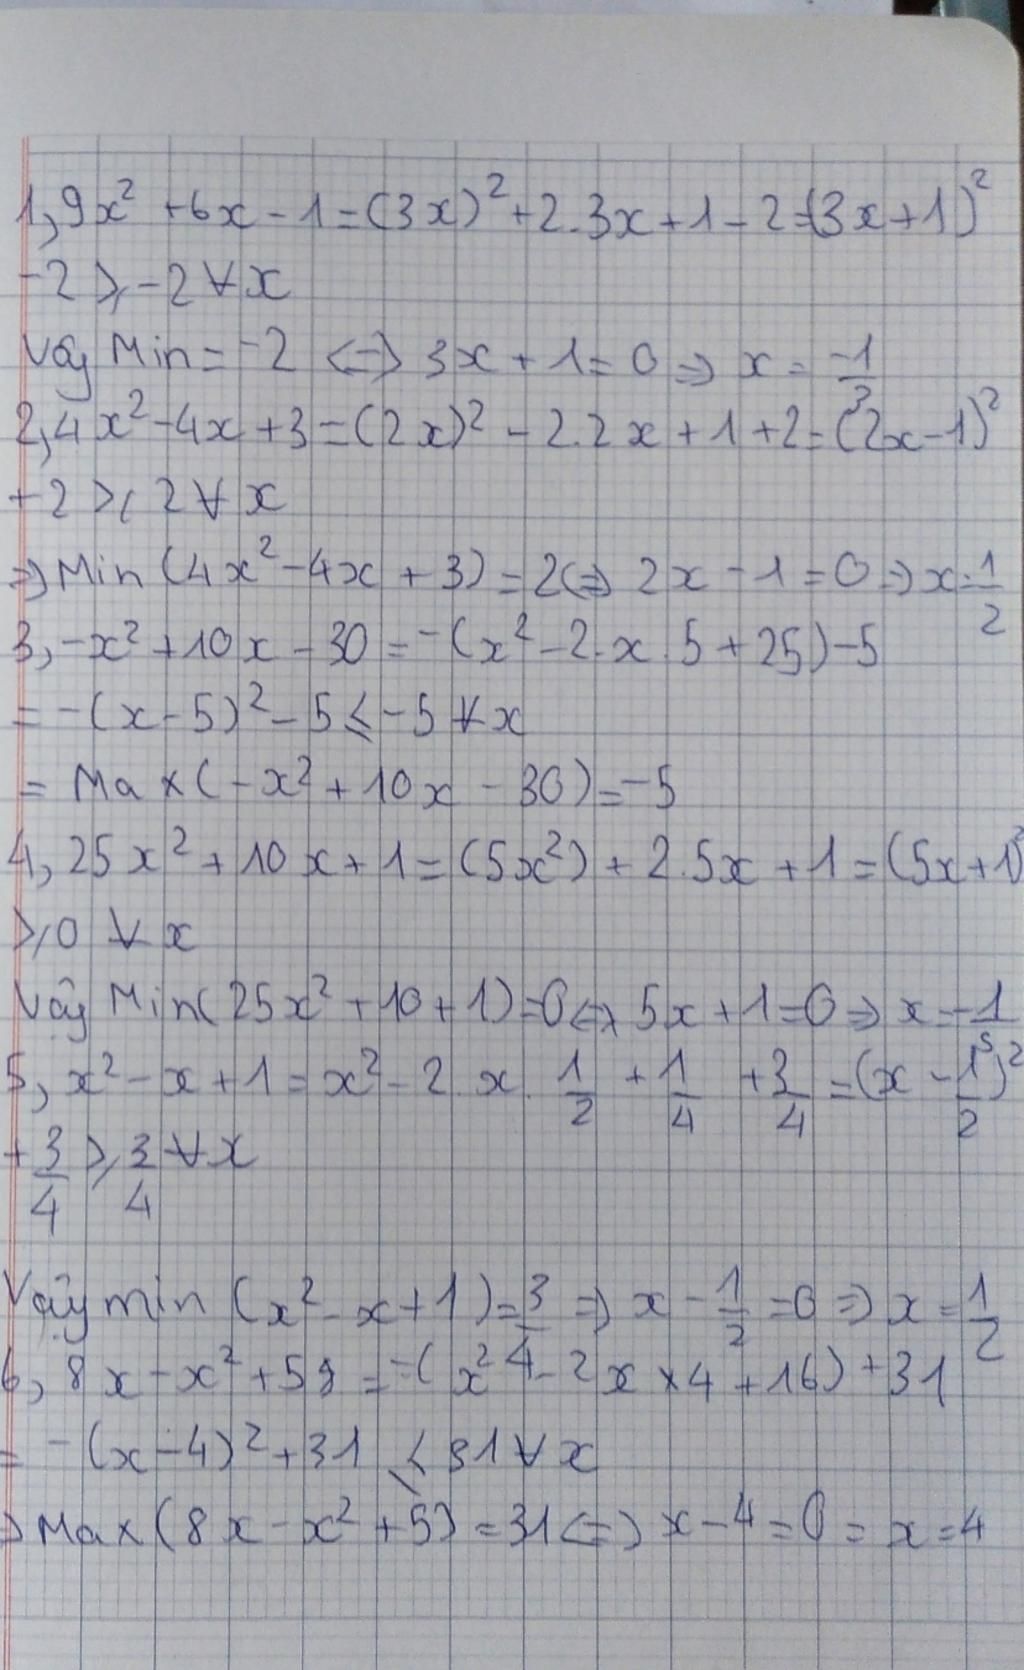 1, 9x² + 6x - 1 = (3x)² + 2.3x + 1 - 2 = (3x + 1)²
-2 ⩾ -2 ∀x
Vậy Min = -2 <=> 3x + 1 = 0 => x = -1/3
2, 4x² - 4x + 3 = (2x)² - 2.2x + 1 + 2 = (2x - 1)²
+2 ⩾ 2 ∀x
=> Min (4x² - 4x + 3) = 2 <=> 2x - 1 = 0 => x = 1/2
3, -x² + 10x - 30 = -(x² - 2.x.5 + 25) - 5
= -(x - 5)² - 5 ⩽ -5 ∀x
= Max (-x² + 10x - 30) = -5
4, 25x² + 10x + 1 = (5x²) + 2.5x + 1 = (5x + 1)²
⩾ 0 ∀x
Vậy Min (25x² + 10 + 1) = 0 <=> 5x + 1 = 0 => x = -1/5
5, x² - x + 1 = x² - 2.x.1/2 + 1/4 + 3/4 = (x - 1/2)²
+ 3/4 ⩾ 3/4 ∀x
Vậy min (x² - x + 1) = 3/4 => x - 1/2 = 0 => x = 1/2
6, 8x - x² + 5 = -(x² - 2x × 4 + 16) + 31
= -(x - 4)² + 31 ⩽ 31 ∀x
=> Max (8x - x² + 5) = 31 <=> x - 4 = 0 = x = 4